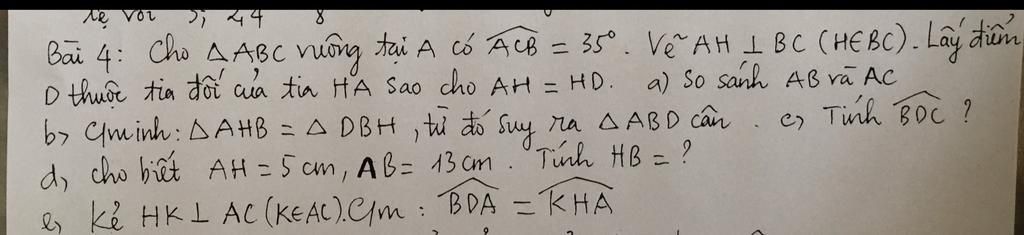 lệ với 3; 2,4 8
Bài 4: Cho △ABC vuông tại A có ACB = 35°. Vẽ AH ⊥ BC (H∈BC). Lấy điểm
D thuộc tia đối của tia HA sao cho AH = HD. a) So sánh AB và AC
b, C/minh: △AHB = △DBH, từ đó suy ra △ABD cân. c, Tính BDC ?
d, cho biết AH = 5 cm, AB = 13 cm. Tính HB = ?
e, Kẻ HK ⊥ AC (K∈AC). C/m: BDA = KHA